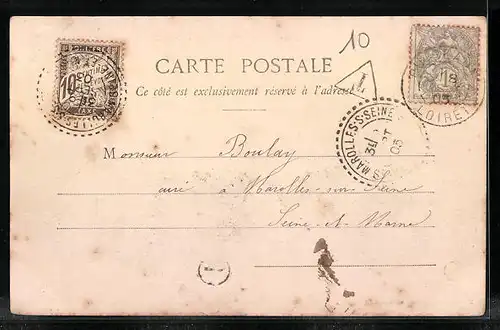 10
CARTE POSTALE
Ce côté est exclusivement réservé à l'adresse
T
10
LOIRET
18
03
MAROLLES-S-SEINE
03
Monsieur Boulay
curé à Marolles-sur-Seine
Seine-et-Marne
1